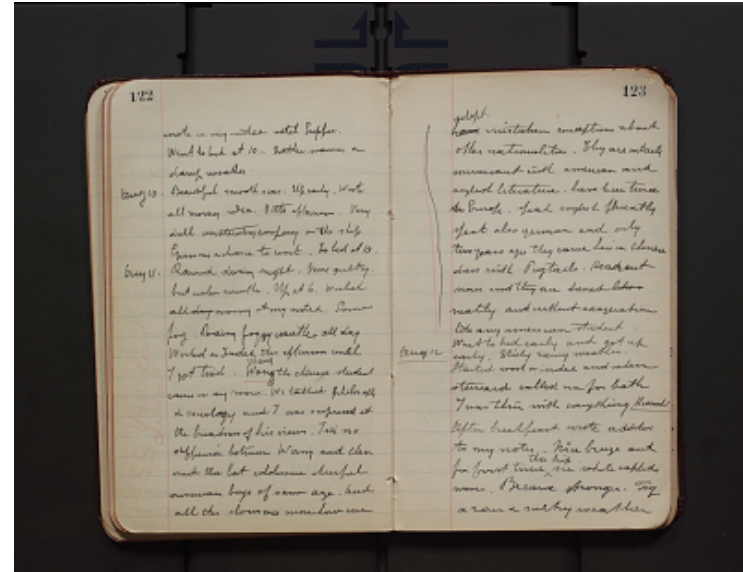 122
wrote in my index until supper.
Went to bed at 10. Rather warm &
damp weather.
Aug 10. Beautiful smooth sea. Up early. Wrote
all morning index. Little afternoon. Very
dull company on the ship
to work. To bed at 10.
Aug 11. Rained during night. Snow
but water smooth. Up at 6. Worked
all day at my notes. Some
fog. Rainy foggy weather all day
Worked on Index this afternoon until
I got tired. Wang
Wang the chinese student
came in my room. We talked Philosophy
& sociology and I was surprised at
the broadness of his views. I see no
difference between Wang and Chen
and the lot cheerful
american boys of same age. And
all this slowness how we
123
adopt
mistaken conception about
other nationalities. They are entirely
conversant with american and
english literature. have been twice
to Europe. Speak english fluently
speak also german and only
two years ago they came here in chinese
dress with Pigtails.
now and they are dressed
neatly and without exageration
like any american student.
Aug 12 Went to bed early and got up
early. Sticky rainy weather.
Started work on index and when
steward called me for bath
I was thru with everything
After breakfast wrote
to my notes. Nice breeze and
for first time this trip, see white capped
waves. Became stronger. Fog
& rain & sultry weather